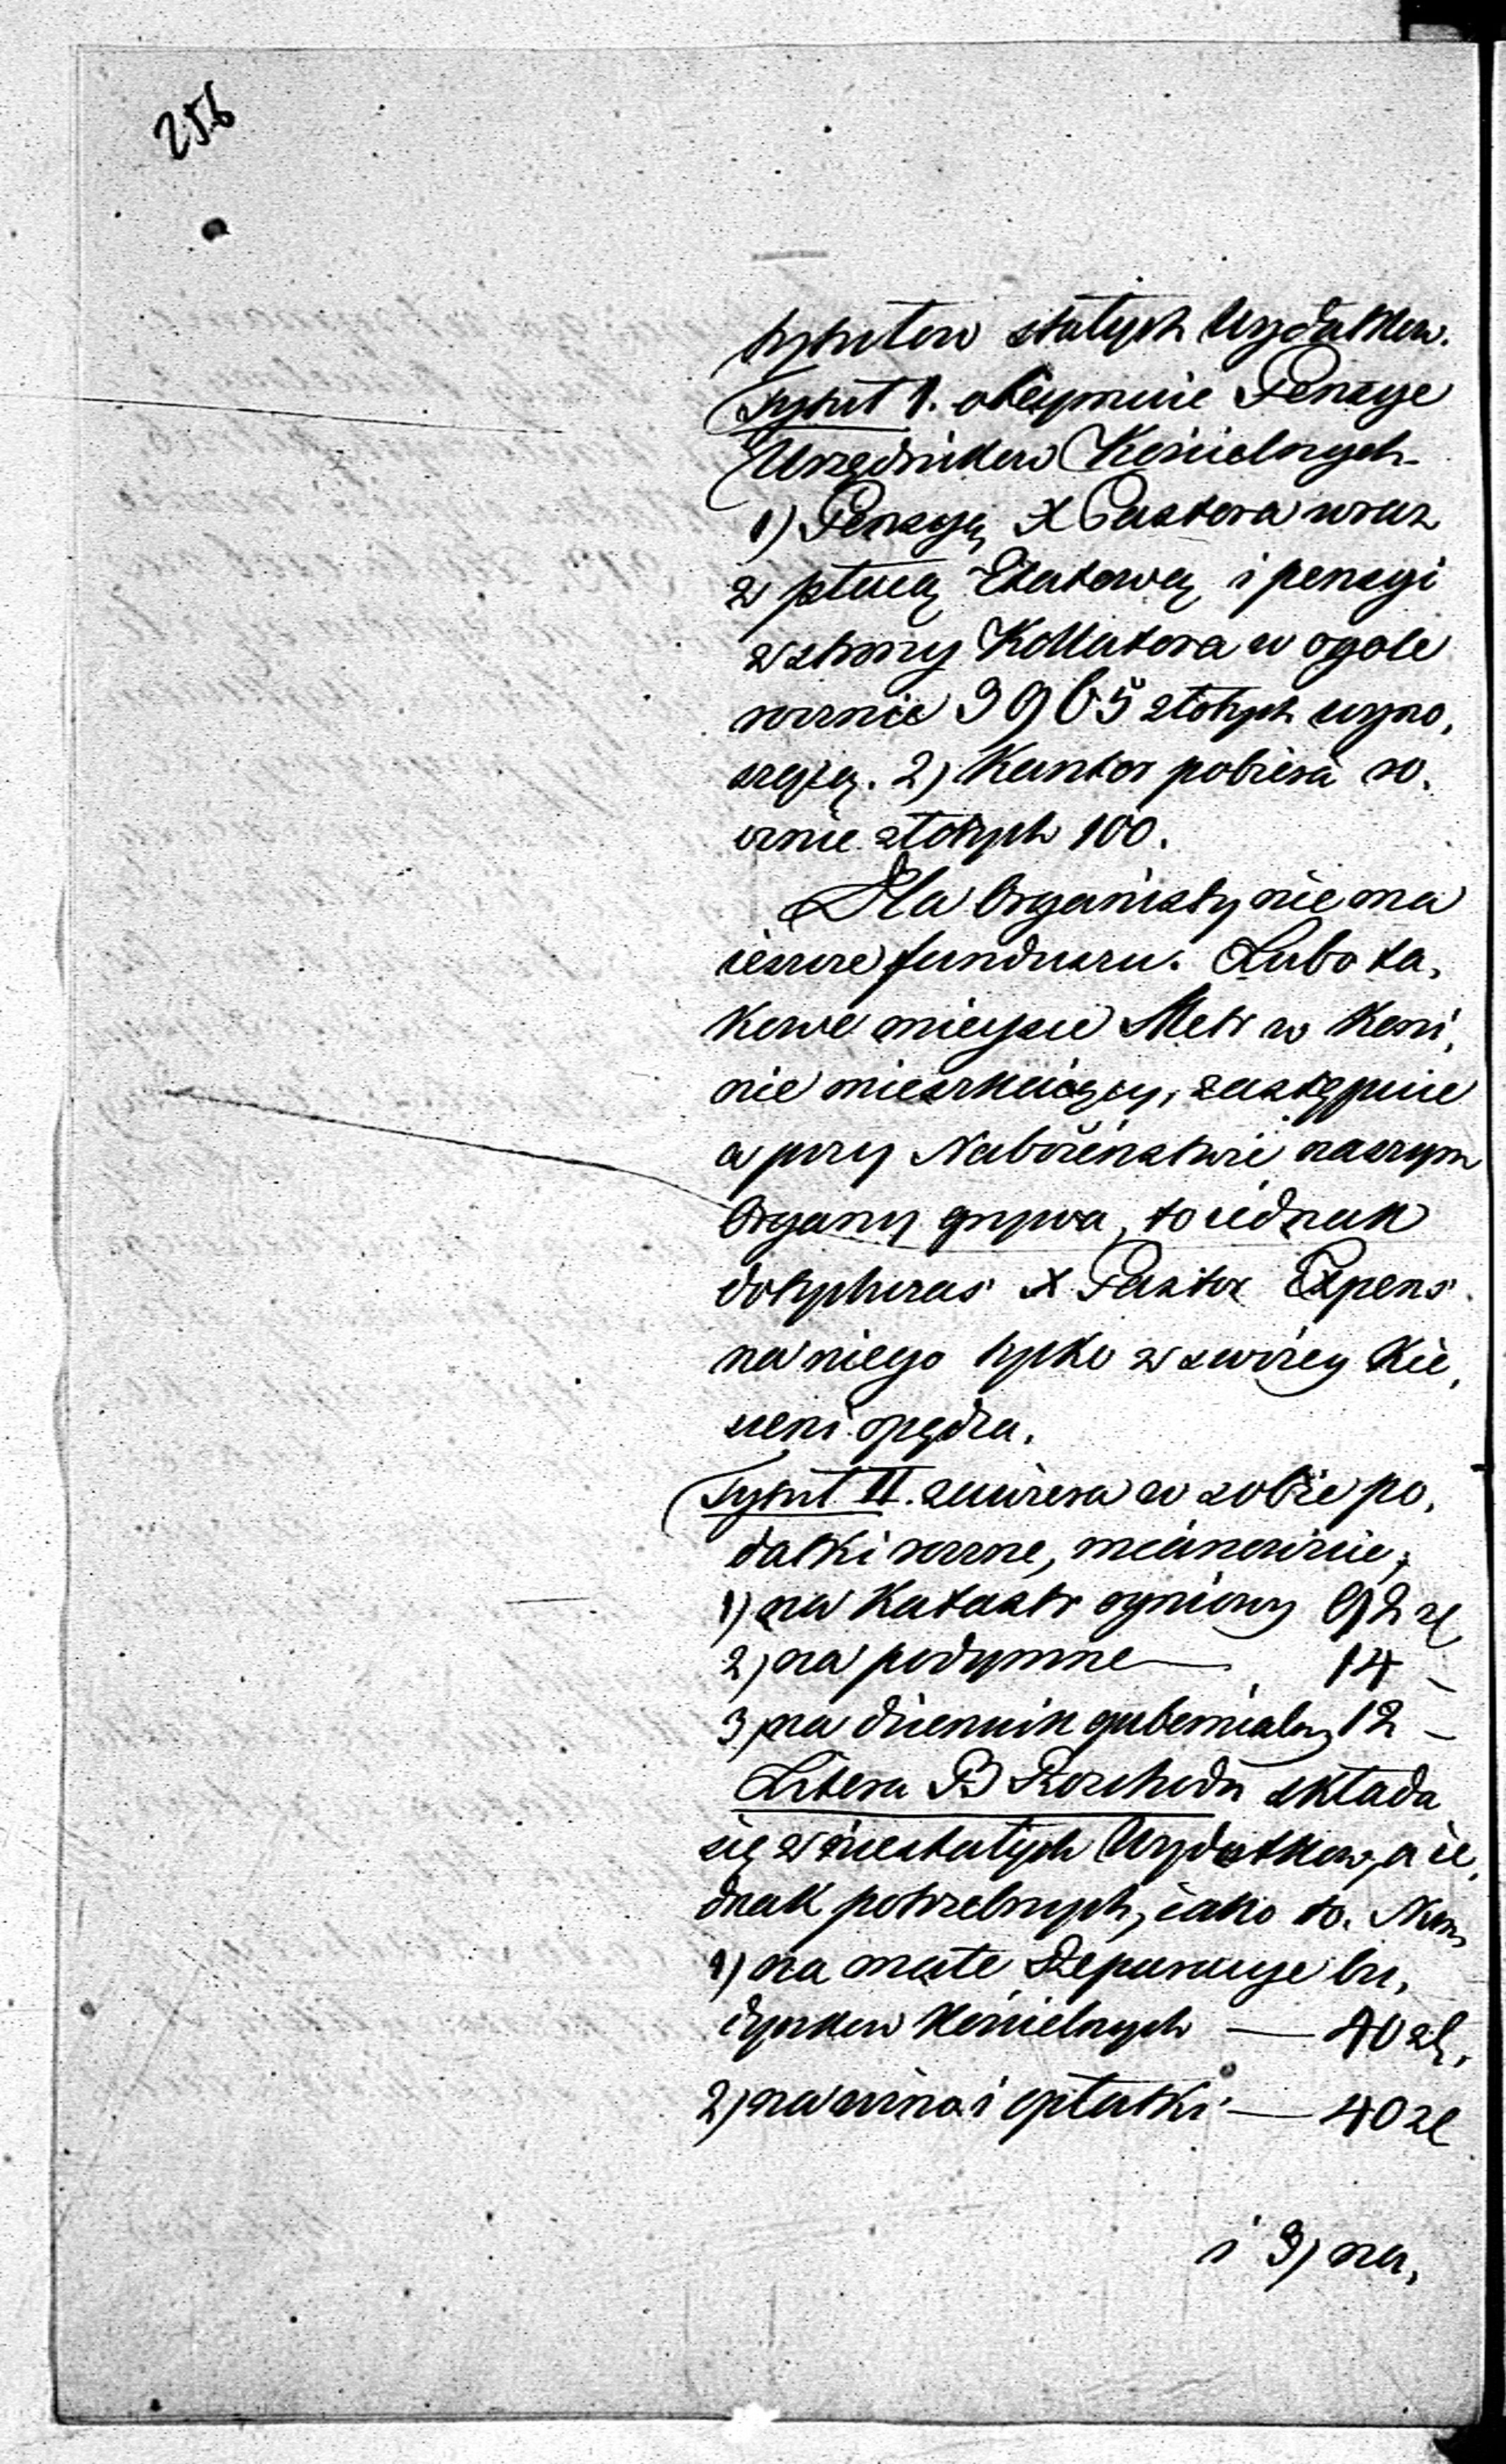 256
tytułow stałych Wydatkow.
Tytuł I. obeymuie Pensye
Urzędnikow Kościelnych
1) Pensyą X Pastora wraz
z płacą Etatową i pensyi
z strony Kollatora w ogole
rocznie 3965 złotych wyno,
szącą. 2) Kantor pobiera ro,
cznie złotych 100.
Dla Organisty nie ma
ieszcze funduszu. Lubo ta,
kowe mieysce Metr w Koni,
nie mieszkaiący, zastępuie
a przy Nabożeństwie naszym
Organy grywa, to iednak
dotychczas X Pastor Expens
na niego tylko z swoiey Kie,
szeni opędza.
Tytuł II. zawiera w sobie po,
datki roczne, mianowicie,
1) na Katastr ogniowy 92 zł
2) na podymne — 14 –
3) na dziennik gubernialny 12 –
Litera B Rozchodu składa
się z niestałych Wydatkow, a ie,
dnak potrzebnych, iako to. Num
1) na małe Reparacye bu,
dynkow Kościelnych — 40 zł,
2) na wino i opłatki — 40 zł
i 3) na,